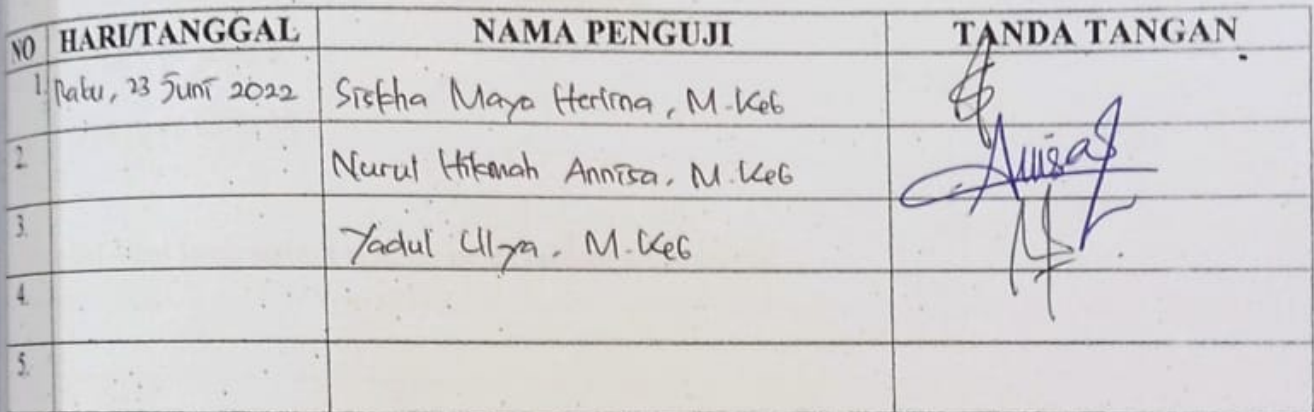 NO HARI/TANGGAL NAMA PENGUJI TANDA TANGAN
1. Rabu, 23 Juni 2022 Siskha Maya Herlina, M.Keb
2. Nurul Hikmah Annisa, M.Keb Anisa
3. Yadul Ulya, M.Keb
4.
5.